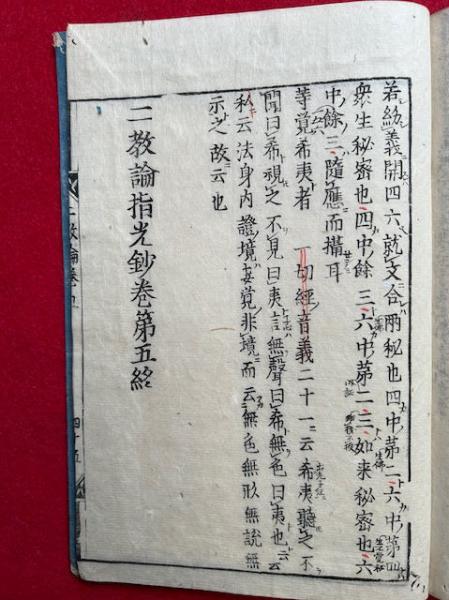 若約義開四六就文合兩秘也四中第二六中第四
衆生秘密也四中餘三六中第二三如来秘密也六
中餘三隨應而攝耳
等覚希夷者 一切經音義二十一云希夷聽之不
聞曰希視之不見曰夷言無聲曰希無色曰夷也云云
私云法身内證境妄覚非境而云無色無形無説無
示之故云也
二教論指光鈔卷第五終
二教論卷五
四十五